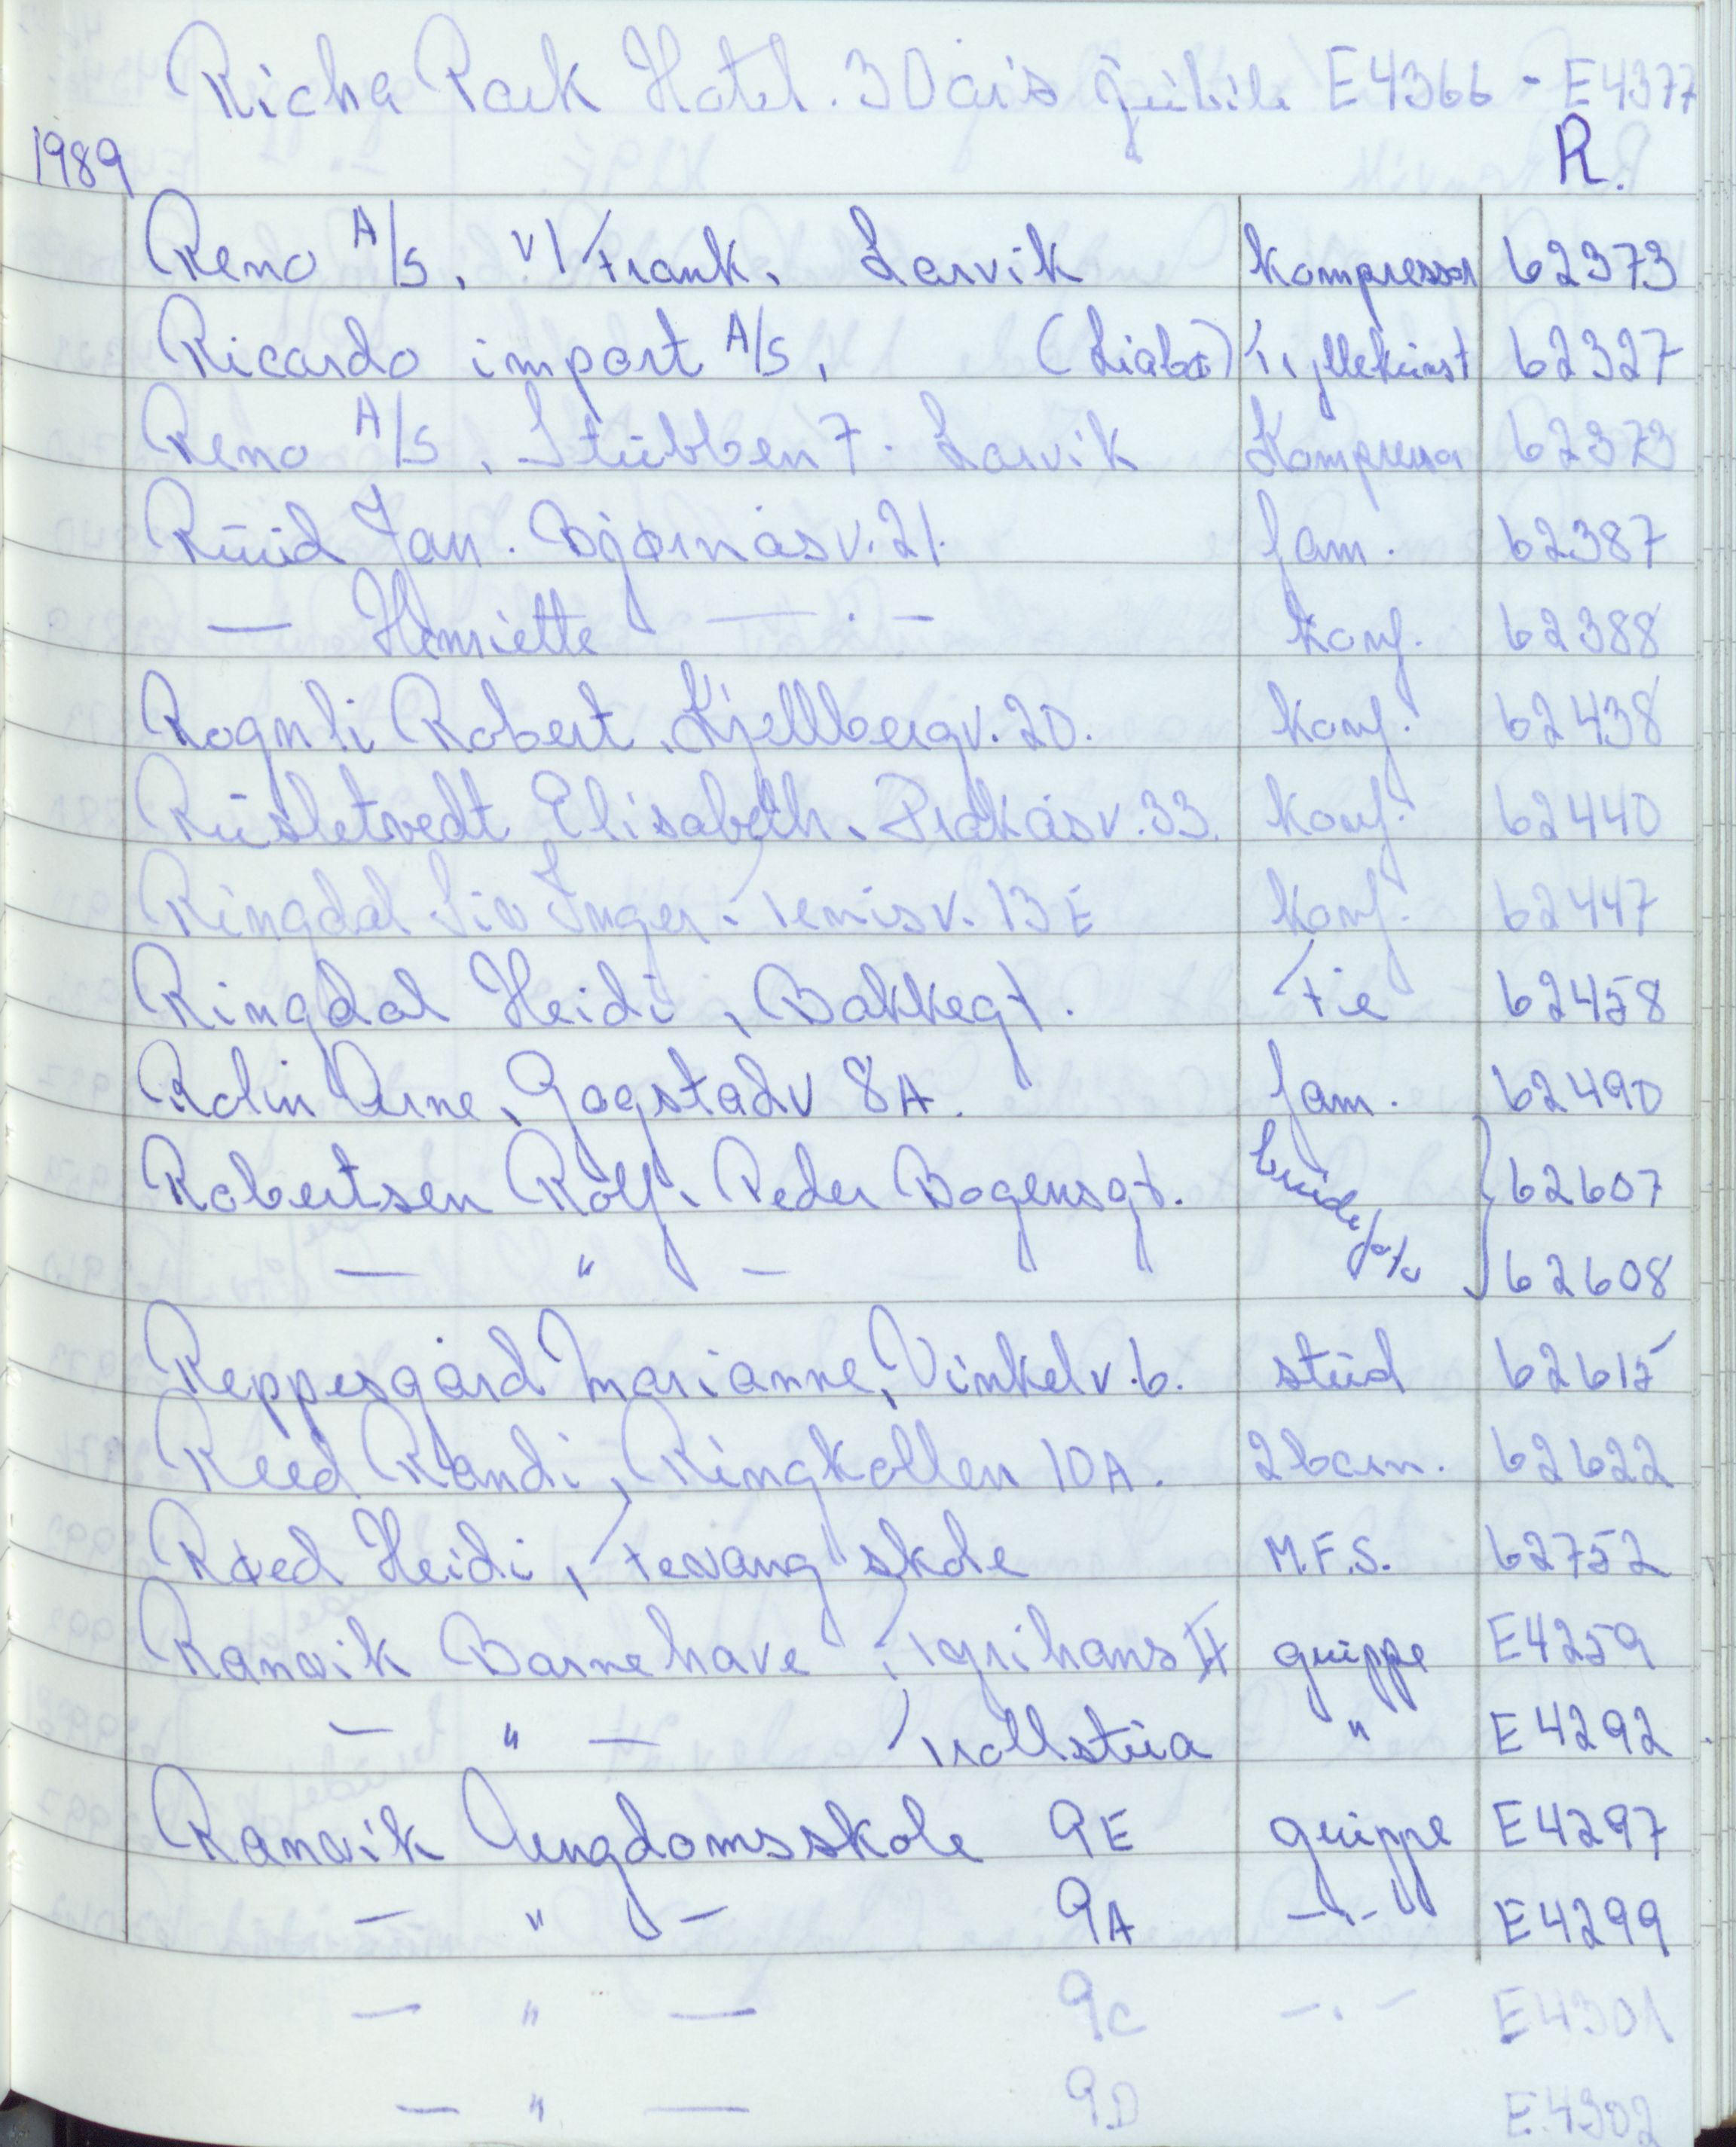 Richa Park Hotel. 30 års jubile E4366 - E4377
1989 R.
Reno A/S, v/ Frank, Larvik kompressor 62373
Ricardo import A/S, (Liabø) Tryllekunst 62327
Reno A/S, Stubben 7. Larvik Kompressor 62373
Ruud Jan. Bjørnåsv. 21. fam. 62387
— Henriette — . — konf. 62388
Rognli Robert, Kjellbergv. 20. konf. 62438
Rusletvedt Elisabeth, Frakåsv. 33. konf. 62440
Ringdal Siv Inger, Tenisv. 13E konf. 62447
Ringdal Heidi, Bakkegt. Fie 62458
Rolin Arne, Gogstadv 8A. fam. 62490
Robertsen Rolf, Peder Bogensgt. brudefoto 62607
— " — 62608
Reppesgård Marianne, Vinkelv. 6. stud 62615
Reed Randi, Ringkollen 10A. 2 barn. 62622
Røed Heidi, Fevang skole M.F.S. 62752
Ranvik Barnehave, Tyrihans II gruppe E4259
— " — Trollstua " E4292
Ranvik Ungdomsskole 9E gruppe E4297
— " — 9A — . — E4299
— " — 9C — . — E4301
— " — 9D E.4302